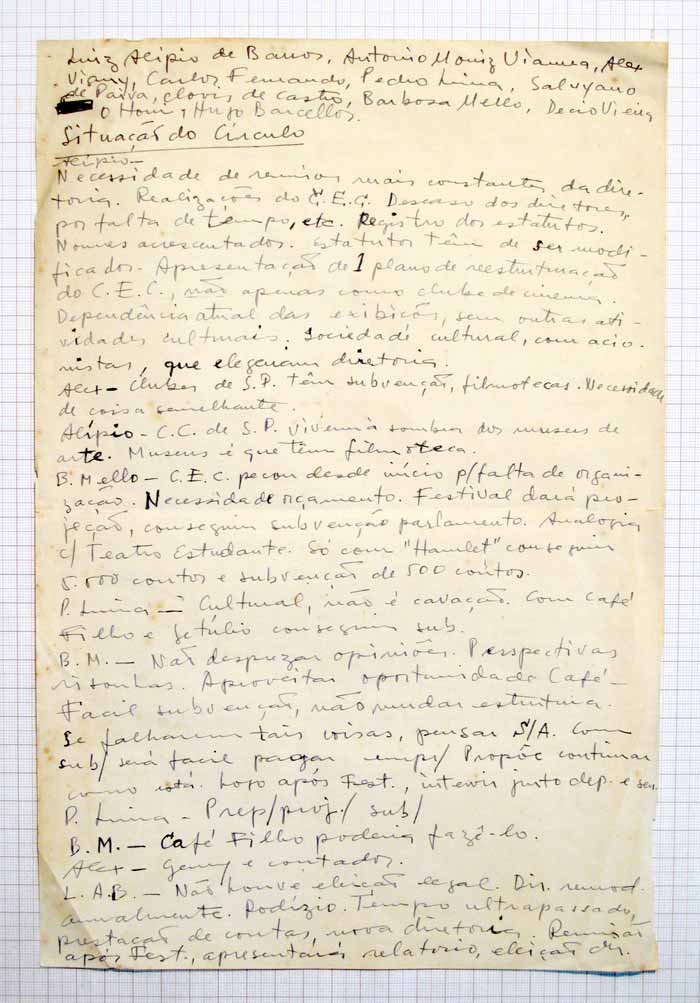 Luiz Alipio de Barros, Antonio Moniz Vianna, Alex
Viany, Carlos Fernando, Pedro Lima, Salvyano
de Paiva, Clovis de Castro, Barbosa Mello, Decio Vieira
O Hom, Hugo Barcellos.
Situação do Círculo
Alípio—
Necessidade de reuniões mais constantes da dire-
toria. Realizações do C.E.C. Descaso dos diretores,
por falta de tempo, etc. Registro dos estatutos.
Nomes acrescentados. Estatutos têm de ser modi-
ficados. Apresentação de 1 plano de reestruturação
do C.E.C., não apenas como clube de cinema.
Dependência atual das exibições, sem outras ati-
vidades culturais. Sociedade cultural, com acio-
nistas, que elegeriam diretoria.
Alex — Clubes de S.P. têm subvenção, filmotecas. Necessidade
de coisa semelhante.
Alípio — C.C. de S.P. vivem à sombra dos museus de
arte. Museus é que têm filmoteca.
B. Mello — C.E.C. pecou desde início p/falta de organi-
zação. Necessidade orçamento. Festival dará pro-
jeção, conseguiu subvenção parlamento. Analogia
c/ Teatro Estudante. Só com "Hamlet" conseguiu
5.000 contos e subvenção de 500 contos.
P. Lima — Cultural, não é cavação. Com Café
Filho e Getúlio conseguiu sub.
B.M. — Não desprezar opiniões. Perspectivas
risonhas. Aproveitar oportunidade Café —
Facil subvenção, não mudar estrutura.
Se falharem tais coisas, pensar S/A. Com
sub/ será facil pagar emp/ Propõe continuar
como está. Logo após Fest., intervir junto dep. e sen.
P. Lima - Prep/proj./ sub/
B.M. — Café Filho poderia fazê-lo.
Alex — Geny e contados.
L.A.B. — Não houve eleição legal. Dir. renod.
anualmente. Rodízio. Tempo ultrapassado,
prestação de contas, nova diretoria. Reunião
após Fest., apresentará relatorio, eleição dir.